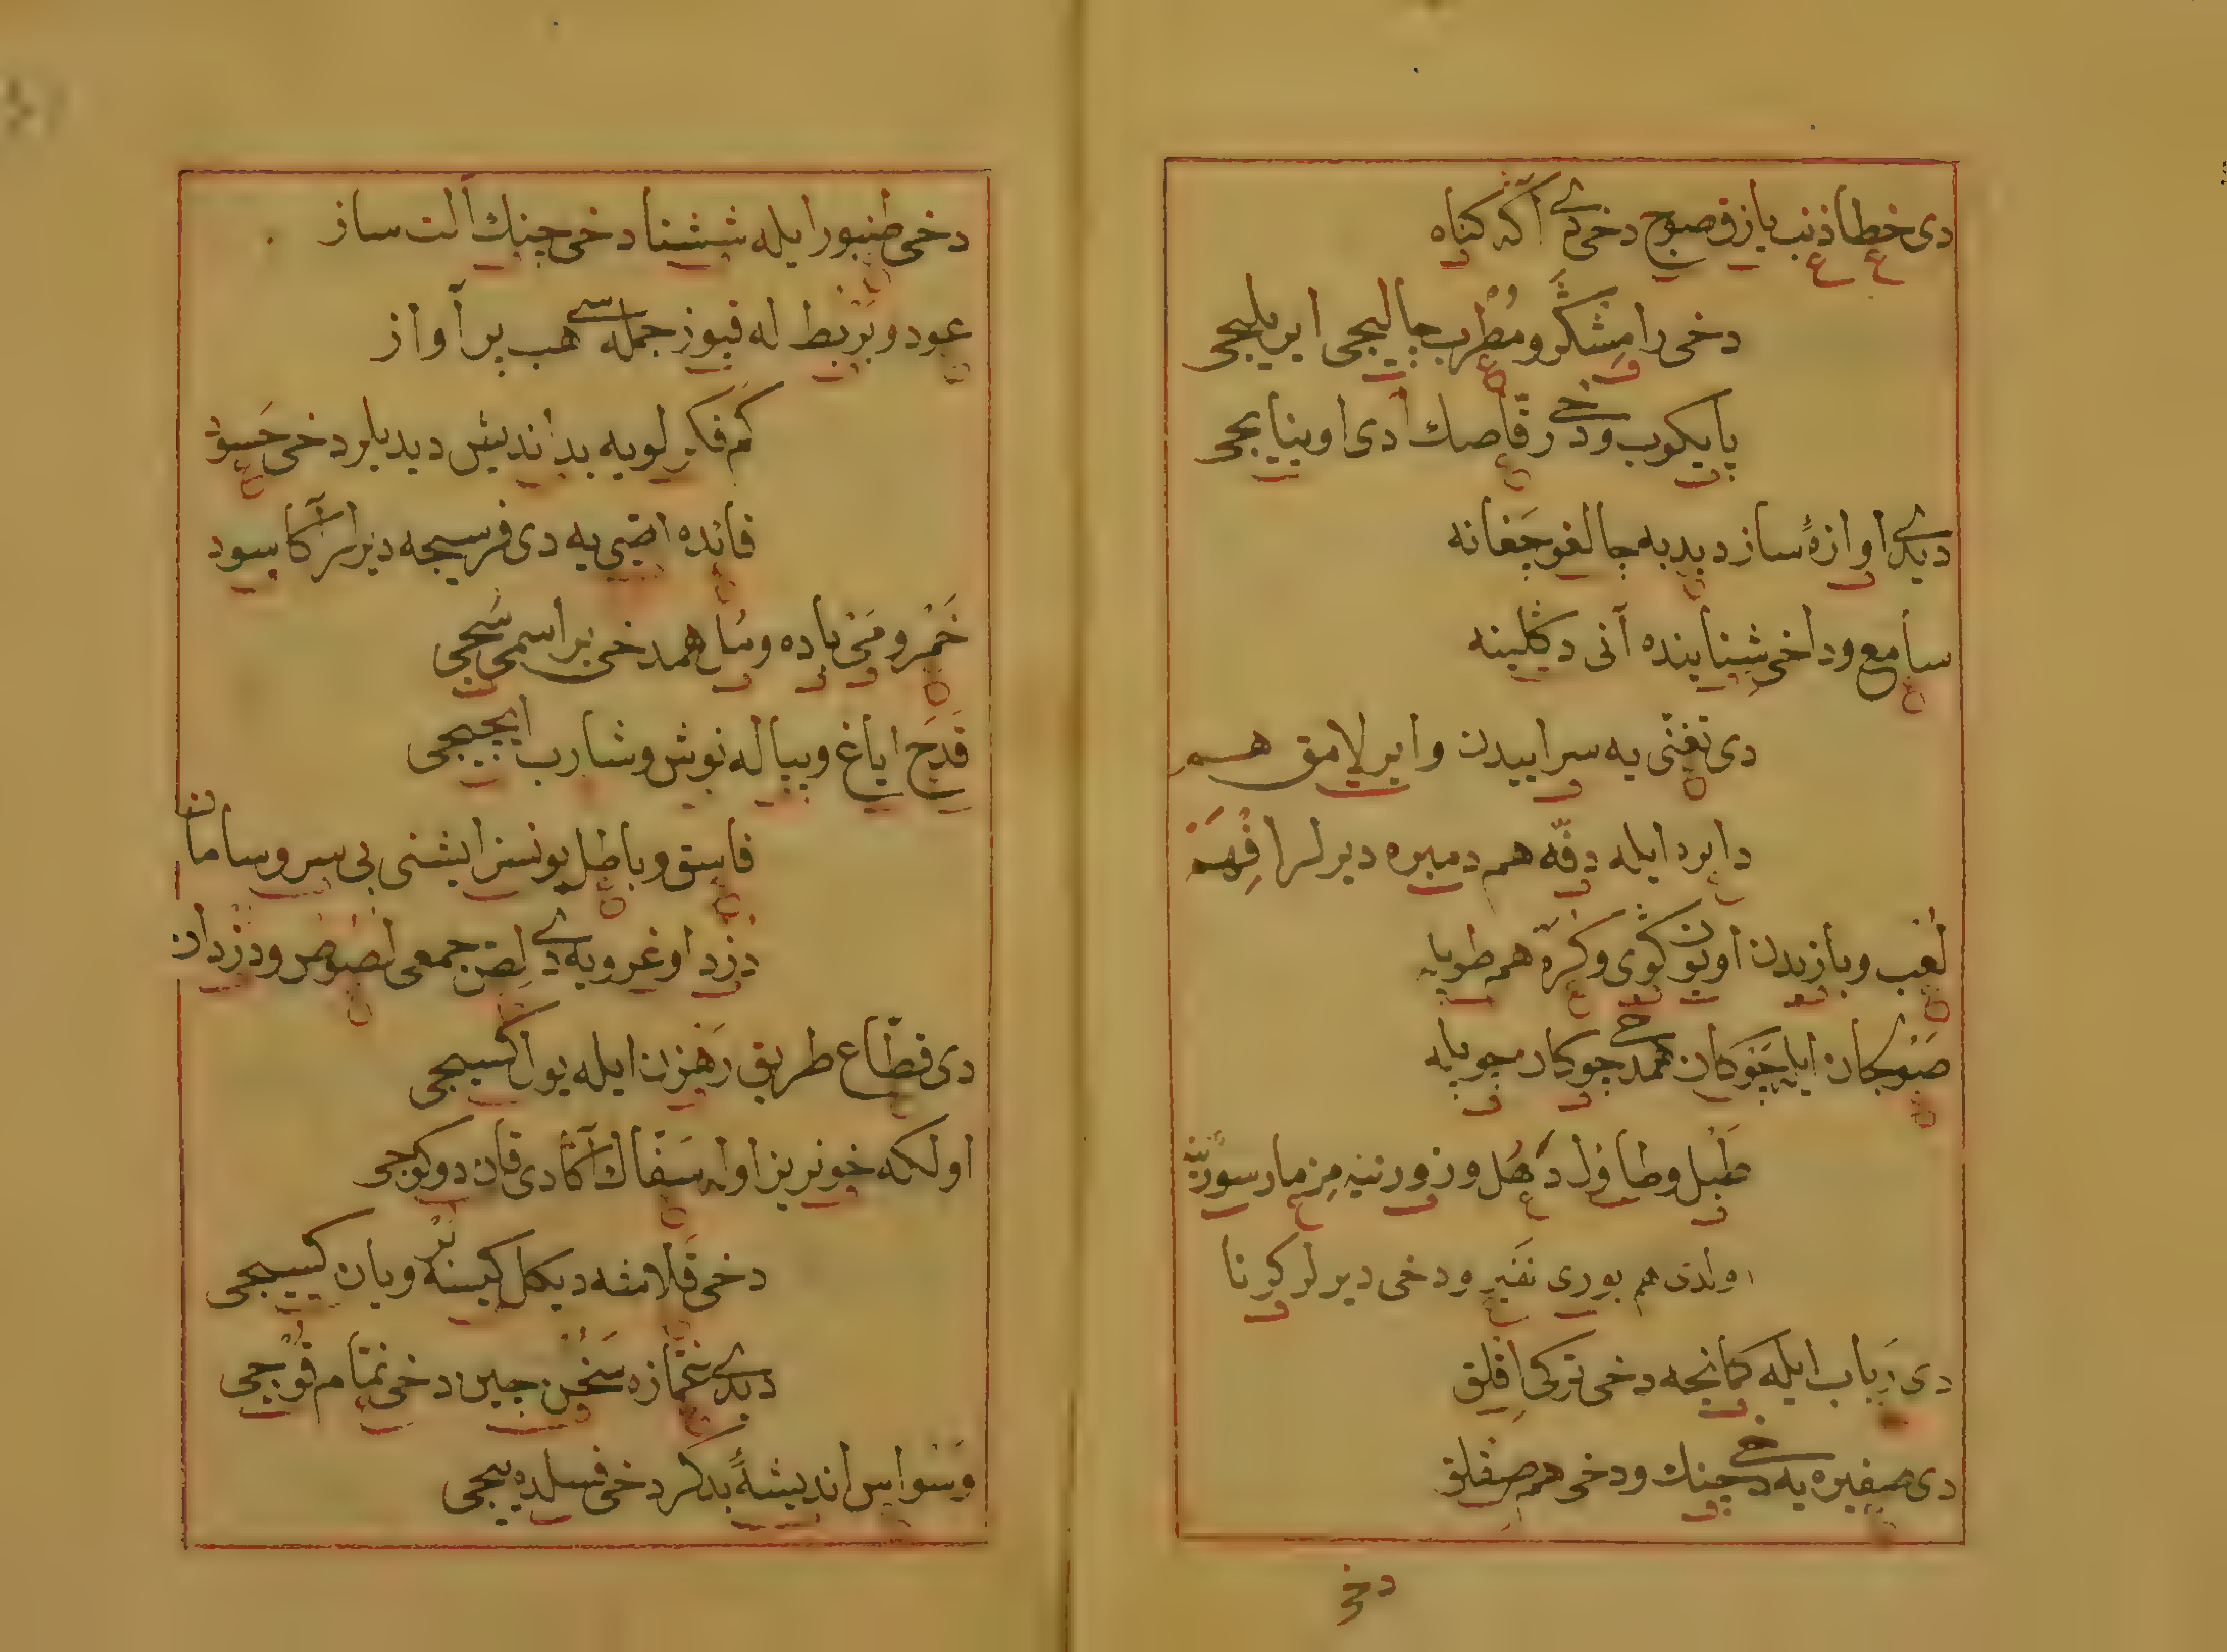 دی خطا ذنب یازق صوج دخی دی آکه کناه
دخی رامشکر و مطرب چالیجی ایرلیجی
پایکوب و دخی رقاصك ادی اوینایجی
دیدی اوازهٔ ساز دبدبه چالغو چغانه
سامع و داخی شنایبنده آنی دکلینه
دی تغنی یه سراییدن و ایرلامق هم
دایره ایله دفه هم دمیره دیرلر افهم
لعب و بازیدن اویون کوی و کره هم طوپله
صوجکان ایله چوکان همدخی چوکان چوپله
طبل و طاول دهل و زورنیه مزمار سورنه
اولدی هم بوری نفیر و دخی دیرلر کرنا
دی رباب ایله کمانچه دخی ترکی اقلق
دی صفیره یه دخی چینك و دخی هم صفلق
دخی
دخی طنبور ایله ششتا دخی چنك آلت ساز
عود و بربط له قپوز جمله سی هب بر آواز
کم فکرلویه بد اندیش دیدیلر دخی حسود
فائده اضی یه دی فرسجه دیرلر آکا سود
خمر و می باده و مل همدخی بر اسمی سجی
قدح ایاغ و پیاله نوش و شارب ایچیجی
فاسق و باطل یونسز ایشنی بی سر و سامان
دزد اوغرویه دی لص جمعی لصوص و دزدان
دی قطاع طریق رهزن ایله یول کسیجی
اولکه خونریز اوله سفاك آکا دی قان دوکیجی
دخی قلامشه دیکل کیسه بر و یان کسیجی
دیدی غمازه سخن چین دخی نمام قوجی
وسواس اندیشهٔ بدکر دخی فسلدییجی